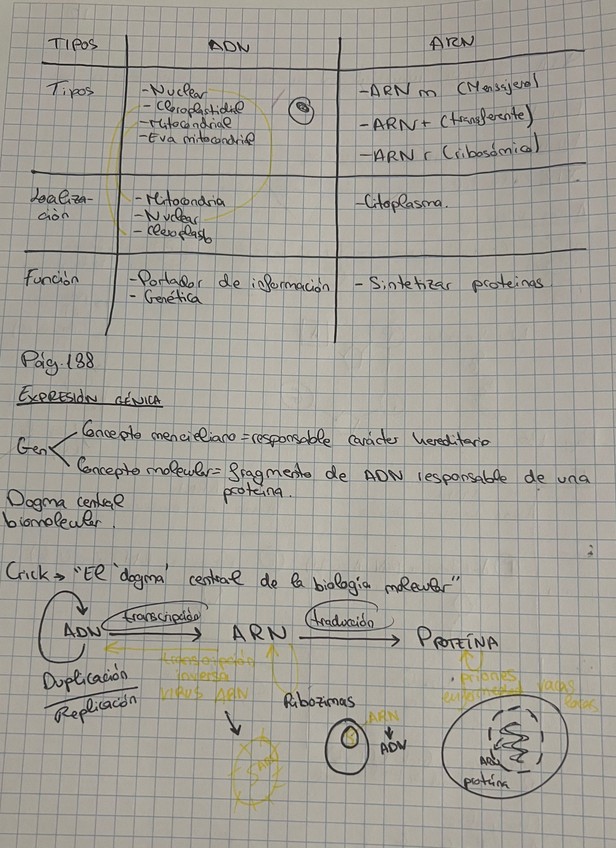 TIPOS ADN ARN
Tipos
-Nuclear
- Cloroplastidial
-Mitocondrial
-Eva mitocondrial
-ARN m (Mensajero)
-ARN t (transferente)
-ARN r (ribosómico)
Localiza-
ción
- Mitocondria
-Nuclear
- Cloroplasto
-Citoplasma.
Función
-Portador de información
- Genética
- Sintetizar proteinas
Pág.188
EXPRESIÓN GÉNICA
Gen
Concepto menceliano = responsable carácter hereditario
Concepto molecular = fragmento de ADN responsable de una
proteína.
Dogma central
biomolecular.
Crick → "El 'dogma' central de la biología molecular"
ADN transcripción ARN traducción PROTEÍNA
transcripción
inversa
VIRUS ARN
Duplicación
Replicación
Ribozimas
priones
enfermedad vacas
locas
ARN
ADN
ADN
proteína